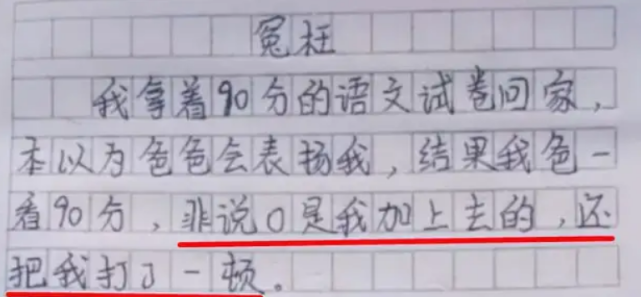 冤枉
我拿着90分的语文试卷回家，
本以为爸爸会表扬我，结果我爸一
看90分，非说0是我加上去的，还
把我打了一顿。